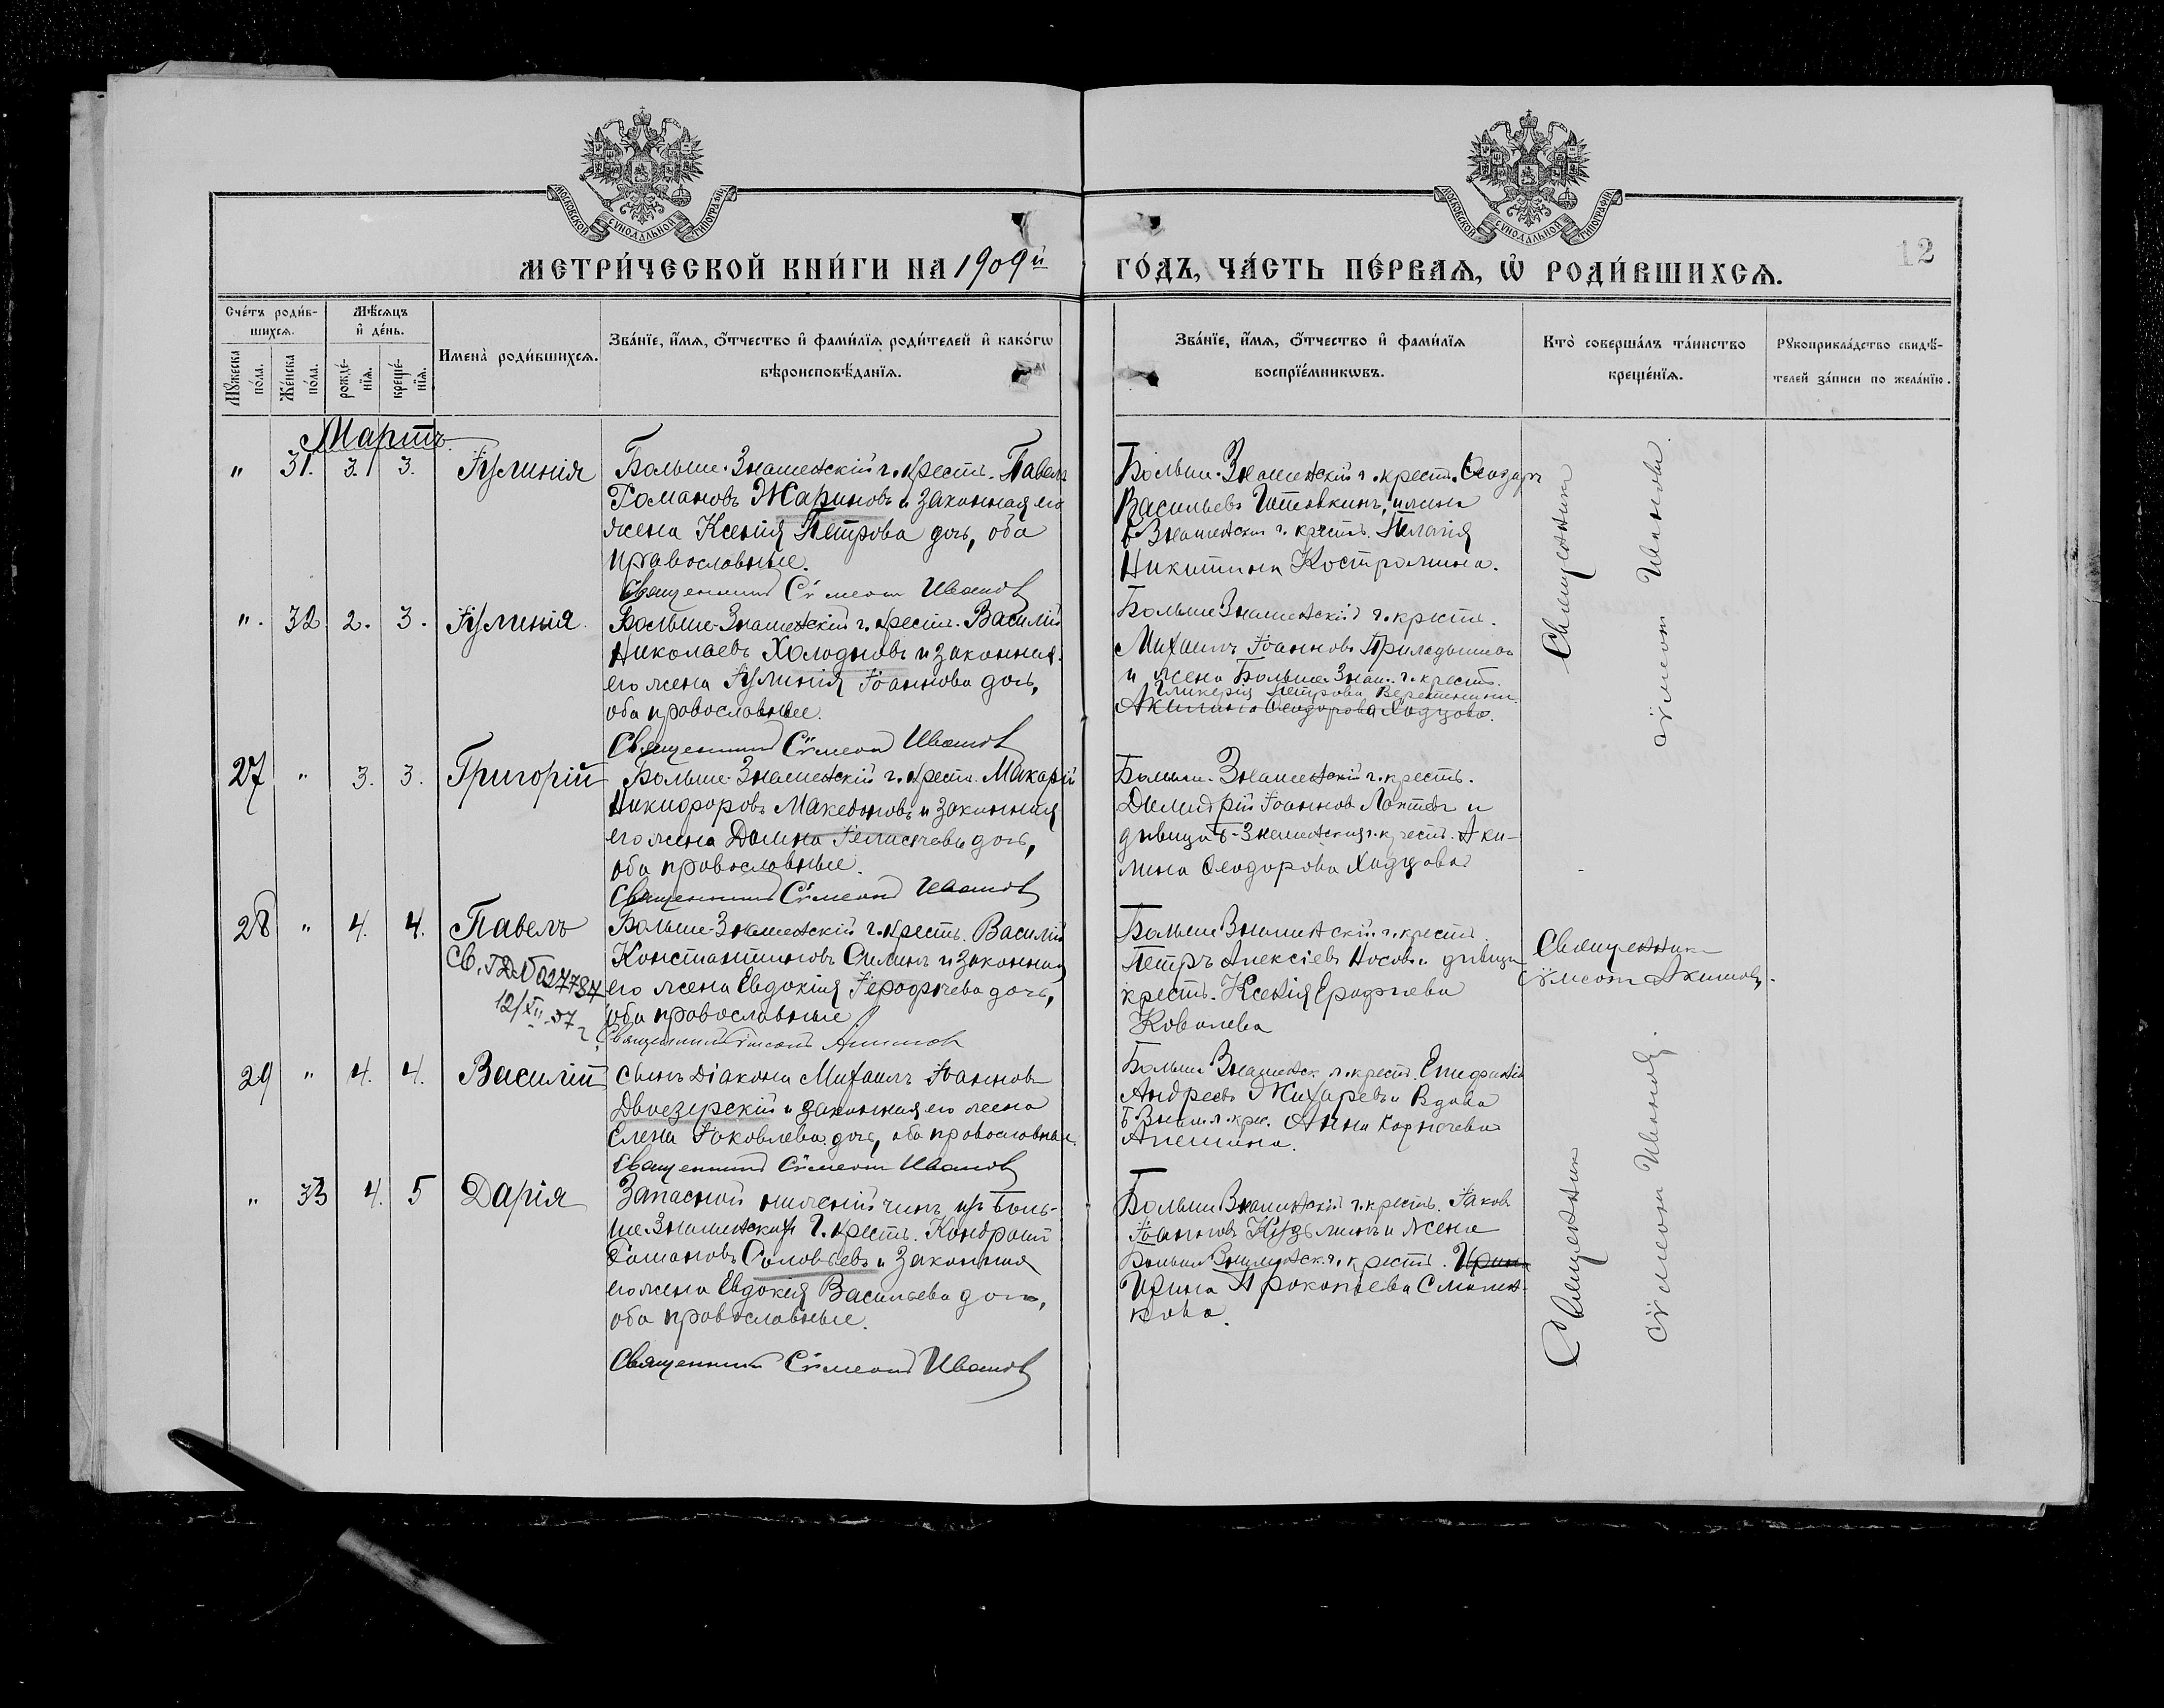 МОСКОВСКОЙ СѴНОДАЛЬНОЙ ТИПОГРАФІИ
МОСКОВСКОЙ СѴНОДАЛЬНОЙ ТИПОГРАФІИ
12
МЕТРИ́ЧЕСКОЙ КНИ́ГИ НА 1909й
ГО́ДЪ, ЧА́СТЬ ПЕ́РВАѦ, Ѽ РОДИ́ВШИХСѦ.
Сче́тъ роди́в-
шихсѧ.
Мѣ́сѧцъ
и҆ де́нь.
Мꙋ́жеска
по́ла.
Же́нска
по́ла.
рожде́-
нїѧ.
креще́-
нїѧ.
Имена̀ роди́вшихсѧ.
Зва́нїе, и҆́мѧ, о҆́тчество и҆ фами́лїѧ роди́телей и҆ како́гѡ
вѣроисповѣ́данїѧ.
Зва́нїе, и҆́мѧ, о҆́тчество и҆ фами́лїѧ
воспрїе́мникѡвъ.
Кто̀ соверша́лъ та́инство
креще́нїѧ.
Рꙋкоприкла́дство свидѣ́-
телей за́писи по жела́нїю.
Мартъ
" 31. 3. 3. Іулинія
Больше-Знаменскій г. крест. Павелъ
Романовъ Жариновъ и законная его
жена Ксенія Петрова дочь, оба
православные.
Священникъ Сѵмеонъ Ивановъ
Больше-Знаменскій г. крест. Ѳеодоръ
Васильевъ и жена
б Знаменск г. крест. Пелагія
Никитина Костромина.
". 32 2. 3. Іулинія.
Больше-Знаменскій г. крест. Василій
Николаевъ Холодновъ и законная
его жена Іулинія Іоаннова дочь,
оба православные.
Священникъ Сѵмеонъ Ивановъ
Больше Знаменскій г. крест.
Михаилъ Іоанновъ
и жена Больше-Знам. г. крест.
Гликерія Петрова
Акилина Ѳеодорова Ходцова.
Священникъ
Сѵмеонъ Ивановъ.
27 " 3. 3. Григорій
Больше-Знаменскій г. крест. Макарій
Никифоровъ Македоновъ и законная
его жена Домна дочь,
оба православные.
Священникъ Сѵмеонъ Ивановъ
Больше-Знаменскій г. крест.
Димитрій Іоанновъ Лаптевъ и
дѣвица Б-Знаменская г. крест. Аки-
лина Ѳеодорова Ходцова
28 " 4. 4. Павелъ
Св. ГД № 027784
12/XII-57 г.
Больше-Знаменскій г. крест. Василій
Константиновъ Силинъ и законная
его жена Евдокія Іерофѣева дочь,
оба православные
Священникъ Сѵмеонъ Акимовъ
Больше Знаменскій г. крест.
Петръ Алексѣевъ Носовъ и дѣвица
крест. Ксенія Ерофѣева
Ковалева
Священникъ
Сѵмеонъ Акимовъ.
29 " 4. 4. Василій
сынъ Діакона Михаилъ Іоанновъ
Двоезерскій и законная его жена
Елена Іаковлева дочь, оба православные.
Священникъ Сѵмеонъ Ивановъ
Больше Знаменск. г. крест. Епифаній
Андреевъ Жихаревъ и Вдова
Б Знам. г. крес. Анна Корнѣева
Алешина.
" 33 4. 5 Дарія
Запасной нижній чинъ изъ Боль-
ше Знаменскихъ г. крест. Кондратъ
Романовъ Соловьевъ и законная
его жена Евдокія Васильева дочь,
оба православные.
Священникъ Сѵмеонъ Ивановъ
Больше Знаменскій г. крест. Іаковъ
Іоанновъ Кузьминъ и жена
Больше Знаменск. г. крест. Ирина
Ирина Прокопьева
Священникъ
Сѵмеонъ Ивановъ.